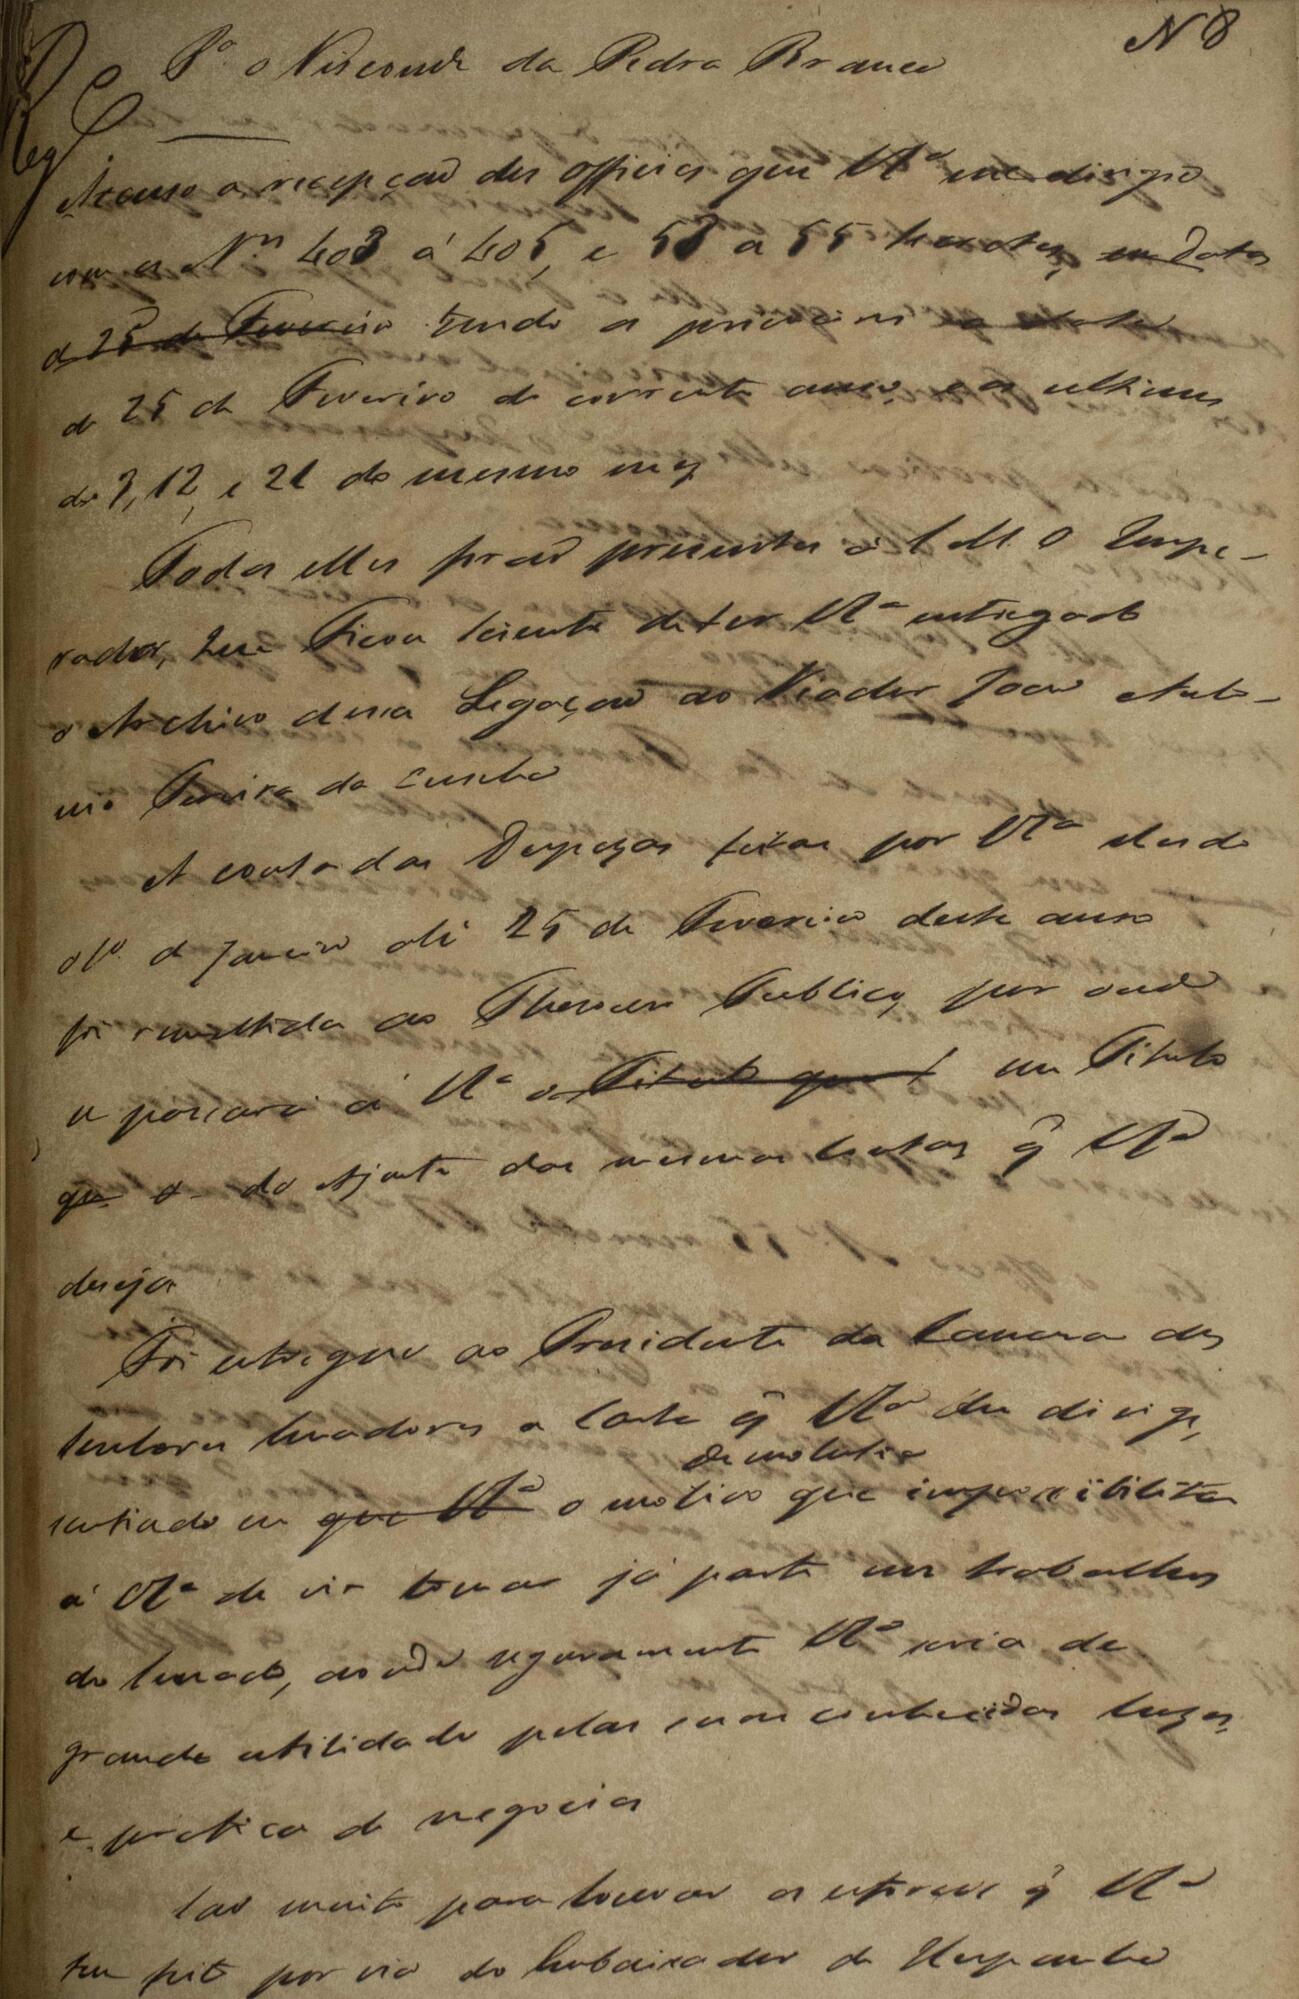 N 8
Pª o Visconde da Pedra Branca
Reg
Accuso a recepção dos officios que Vª me dirigio
com os Nºs 403 á 405, e 53 a 55 secretos, em datas
de 25 de Fevereiro tendo os primeiros a data
de 25 de Fevereiro do corrente anno, e os ultimos
de 7, 12, e 21 do mesmo mez
Todos elles forão presentes a S. M. O Impe-
rador, Que Ficou sciente de ter Vª entregado
o Archivo dessa Legação ao Viador João Anto-
nio Pereira da Cunha
A conta das Despezas feitas por Vª desde
o 1º de Janeiro até 25 de Fevereiro deste anno
foi remettida ao Thesouro Publico, por onde
se passará á Vª o Titulo que um Titulo
que o do Ajuste das mesmas Contas q̃ Vª
deseja
Foi entregue ao Presidente da Camara dos
Senhores Senadores a Carta q̃ Vª lhe dirige,
sentindo eu que Vª o motivo de molestia que impossibilita
á Vª de vir tomar já parte nos trabalhos
do Senado, aonde seguramente Vª seria de
grande utilidade pelas suas conhecidas luzes,
e pratica de negocios
São muito para louvar os esforços q̃ Vª
tem feito por via do Embaixador de Hespanha